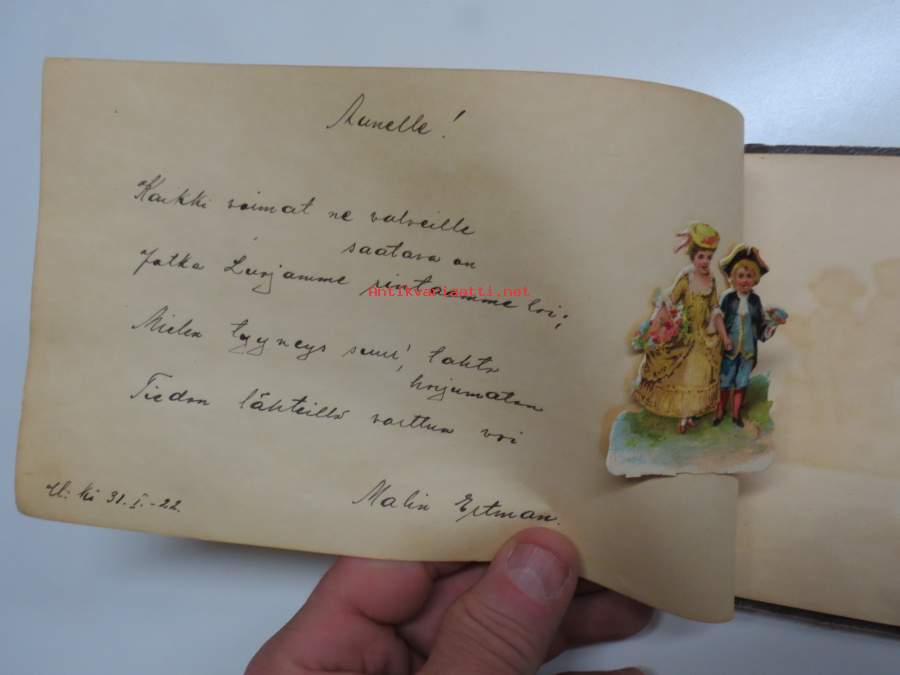 Aunelle!
Kaikki voimat ne valveille
saatava on
Jotka Luojamme rintaamme loi;
Antikvariaatti.net
Mielen tyyneys suuri, tahto
horjumaton
Tiedon lähteillä varttua voi
H:ki 31.I.-22.
Malin Ertman.